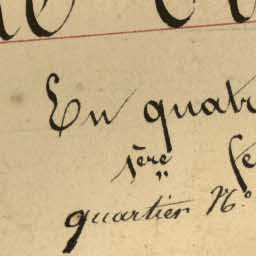 En quatr
1ère fe
quartier No